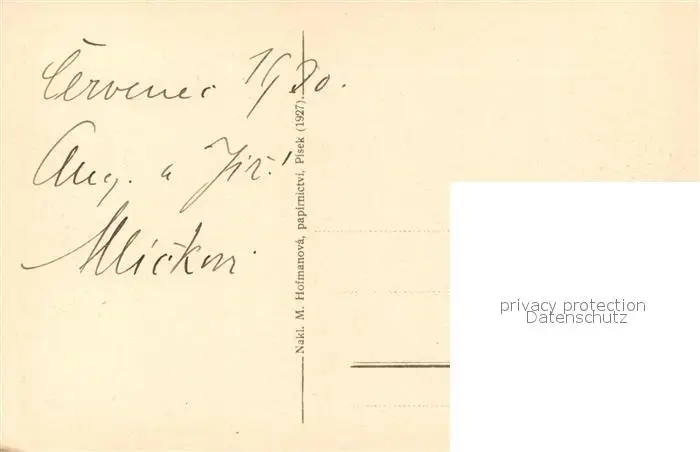 Červenec 1930.
Aug. a Jiř.
Mličkovi
Nakl. M. Hofmanová, papírnictví, Písek (1927).
privacy protection
Datenschutz